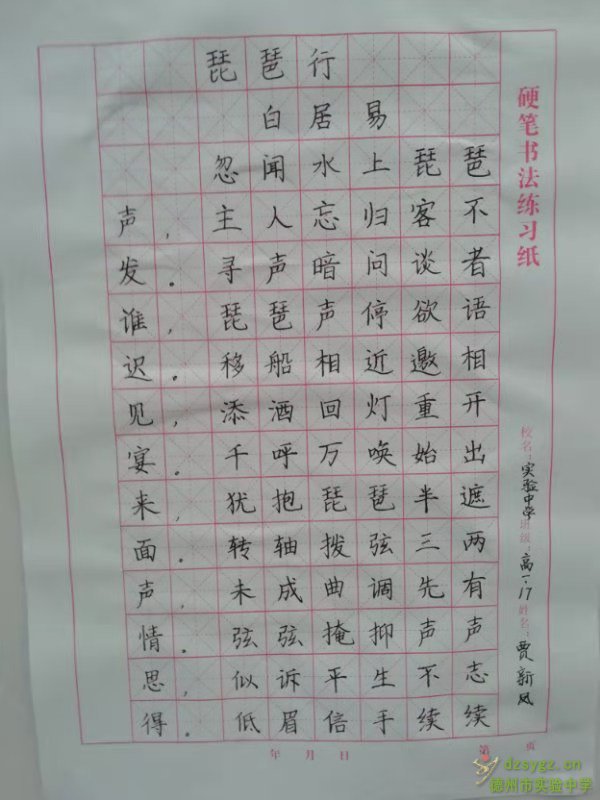 琵琶行
白居易
忽闻水上琵琶
声，主人忘归客不
发。寻声暗问谈者
谁，琵琶声停欲语
迟。移船相近邀相
见，添酒回灯重开
宴。千呼万唤始出
来，犹抱琵琶半遮
面。转轴拨弦三两
声，未成曲调先有
情。弦弦掩抑声声
思，似诉平生不志
得。低眉信手续续
硬笔书法练习纸
校名：实验中学 班级：高一.17 姓名：贾新凤
年 月 日
第 页
dzsygz.cn
德州市实验中学